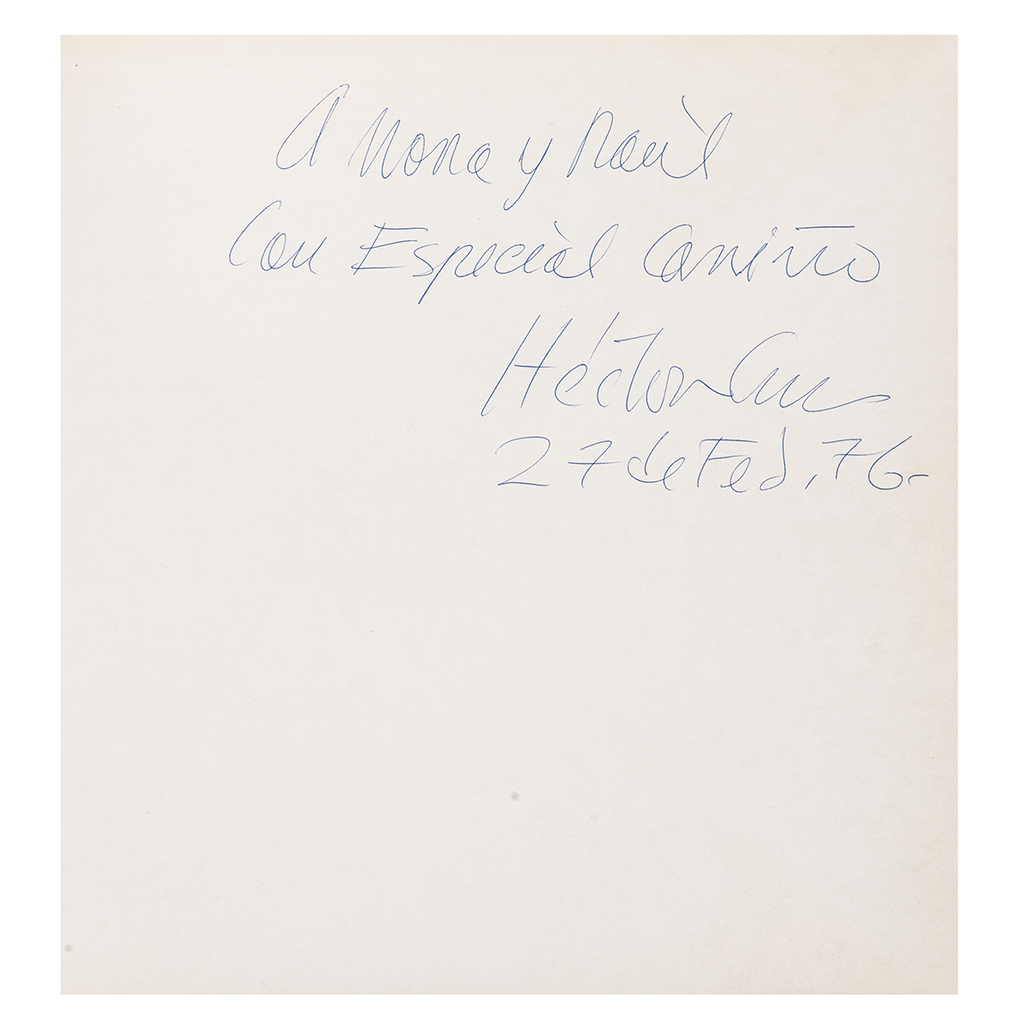 A Nona y Raúl
Con Especial Cariño
Héctor Cruz
27 de Feb, 76-